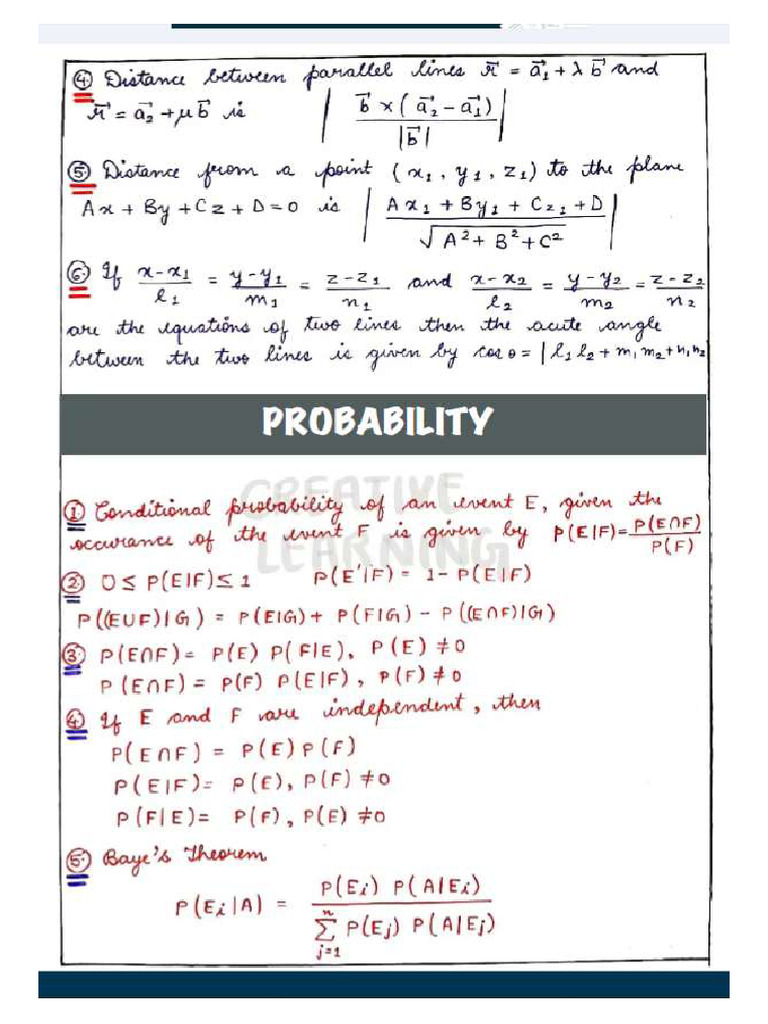 ④ Distance between parallel lines r⃗ = a⃗₁ + λ b⃗ and
r⃗ = a⃗₂ + μ b⃗ is | b⃗ × (a⃗₂ - a⃗₁) / |b⃗| |
⑤ Distance from a point (x₁, y₁, z₁) to the plane
Ax + By + Cz + D = 0 is | Ax₁ + By₁ + Cz₁ + D / √A² + B² + C² |
⑥ If x-x₁/l₁ = y-y₁/m₁ = z-z₁/n₁ and x-x₂/l₂ = y-y₂/m₂ = z-z₂/n₂
are the equations of two lines then the acute angle
between the two lines is given by cosθ = |l₁l₂ + m₁m₂ + n₁n₂
PROBABILITY
CREATIVE
LEARNING
① Conditional probability of an event E, given the
occurance of the event F is given by P(E|F) = P(E∩F)/P(F)
② 0 ≤ P(E|F) ≤ 1 P(E'|F) = 1 - P(E|F)
P((E∪F)|G) = P(E|G) + P(F|G) - P((E∩F)|G)
③ P(E∩F) = P(E) P(F|E), P(E) ≠ 0
P(E∩F) = P(F) P(E|F), P(F) ≠ 0
④ If E and F are independent, then
P(E∩F) = P(E) P(F)
P(E|F) = P(E), P(F) ≠ 0
P(F|E) = P(F), P(E) ≠ 0
⑤ Baye's Theorem
P(Eᵢ|A) = P(Eᵢ) P(A|Eᵢ) / ∑ⁿⱼ₌₁ P(Eⱼ) P(A|Eⱼ)